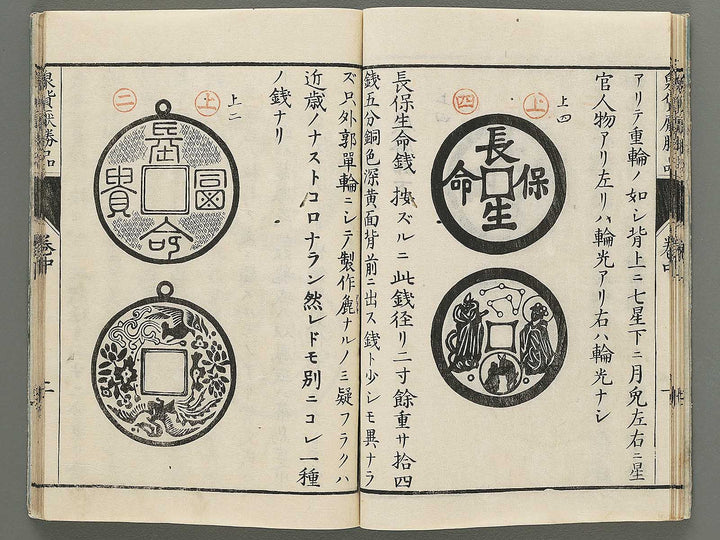 アリテ重輪ノ如シ背上ニ七星下ニ月兎左右ニ星
官人物アリ左リハ輪光アリ右ハ輪光ナシ
上四
上
四
長
命
保
生
長保生命銭 按ズルニ此銭径リ二寸餘重サ拾四
銭五分銅色深黄面背前ニ出ス銭ト少シモ異ナラ
ズ只外郭單輪ニシテ製作麁ナルノミ疑フラクハ
近歳ノナストコロナラン然レドモ別ニコレ一種
ノ銭ナリ
上二
上
二
長
命
富
貴
泉貨
勝品
巻中
二